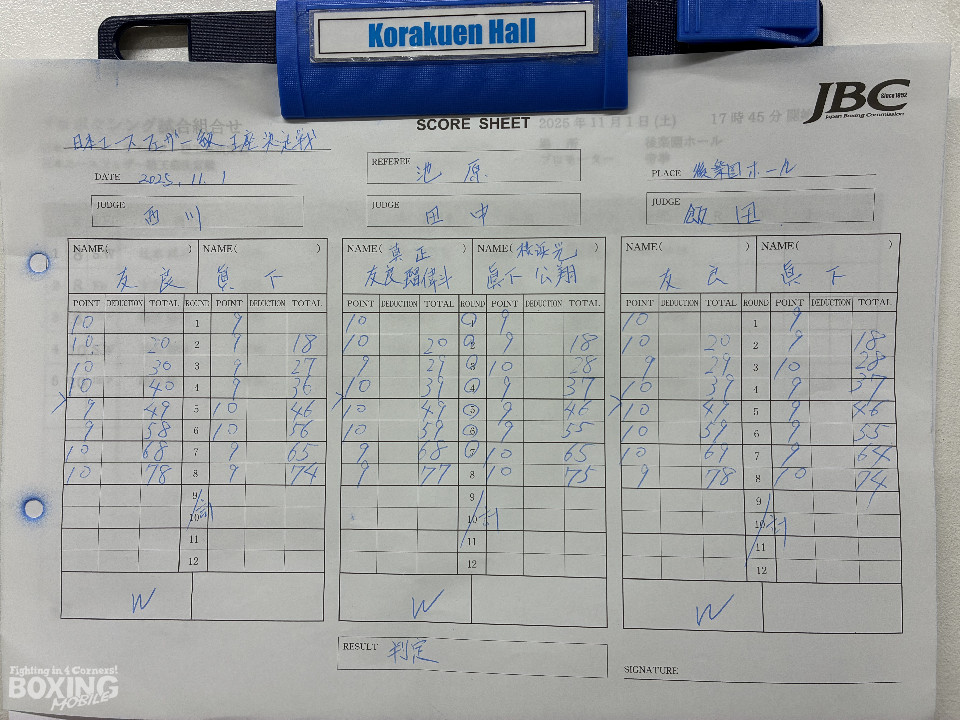 Korakuen Hall
JBC
Since 1952
Japan Boxing Commission
SCORE SHEET
2025年11月1日(土) 17時45分
日本ユースフェザー級王座決定戦
DATE 2025.11.1
REFEREE 池原
PLACE 後楽園ホール
JUDGE 西川
JUDGE 田中
JUDGE 飯田
NAME( ) NAME( ) NAME( 真正 ) NAME( 横浜光 ) NAME( ) NAME( )
友良 眞下 友良瑠偉斗 眞下公翔 友良 眞下
POINT DEDUCTION TOTAL ROUND POINT DEDUCTION TOTAL POINT DEDUCTION TOTAL ROUND POINT DEDUCTION TOTAL POINT DEDUCTION TOTAL ROUND POINT DEDUCTION TOTAL
10 1 9 10 1 9 10 1 9
10 20 2 9 18 10 20 2 9 18 10 20 2 9 18
10 30 3 9 27 9 29 3 10 28 9 29 3 10 28
10 40 4 9 36 10 39 4 9 37 10 39 4 9 37
9 49 5 10 46 10 49 5 9 46 10 49 5 9 46
9 58 6 10 56 10 59 6 9 55 10 59 6 9 55
10 68 7 9 65 9 68 7 10 65 10 69 7 9 64
10 78 8 9 74 9 77 8 10 75 9 78 8 10 74
9 9 9
10 計 10 計 10 計
11 11 11
12 12 12
W W W
RESULT 判定
SIGNATURE
Fighting in 4 Corners!
BOXING
MOBILE